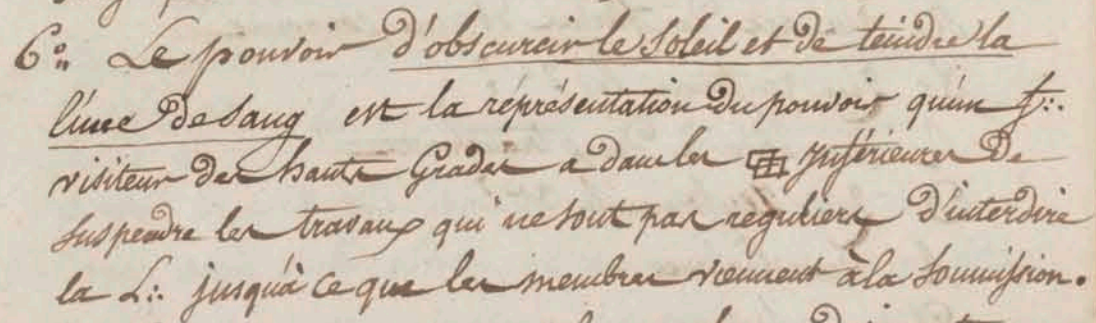 6.° Le pouvoir d'obscurcir le soleil et de teindre la
lune de sang est la représentation du pouvoir qu'un f∴
visiteur des hauts Grades a dans les 卌 inférieures de
suspendre les travaux qui ne sont pas reguliers, d'interdire
la L∴ jusqu'à ce que les membres viennent à la soumission.